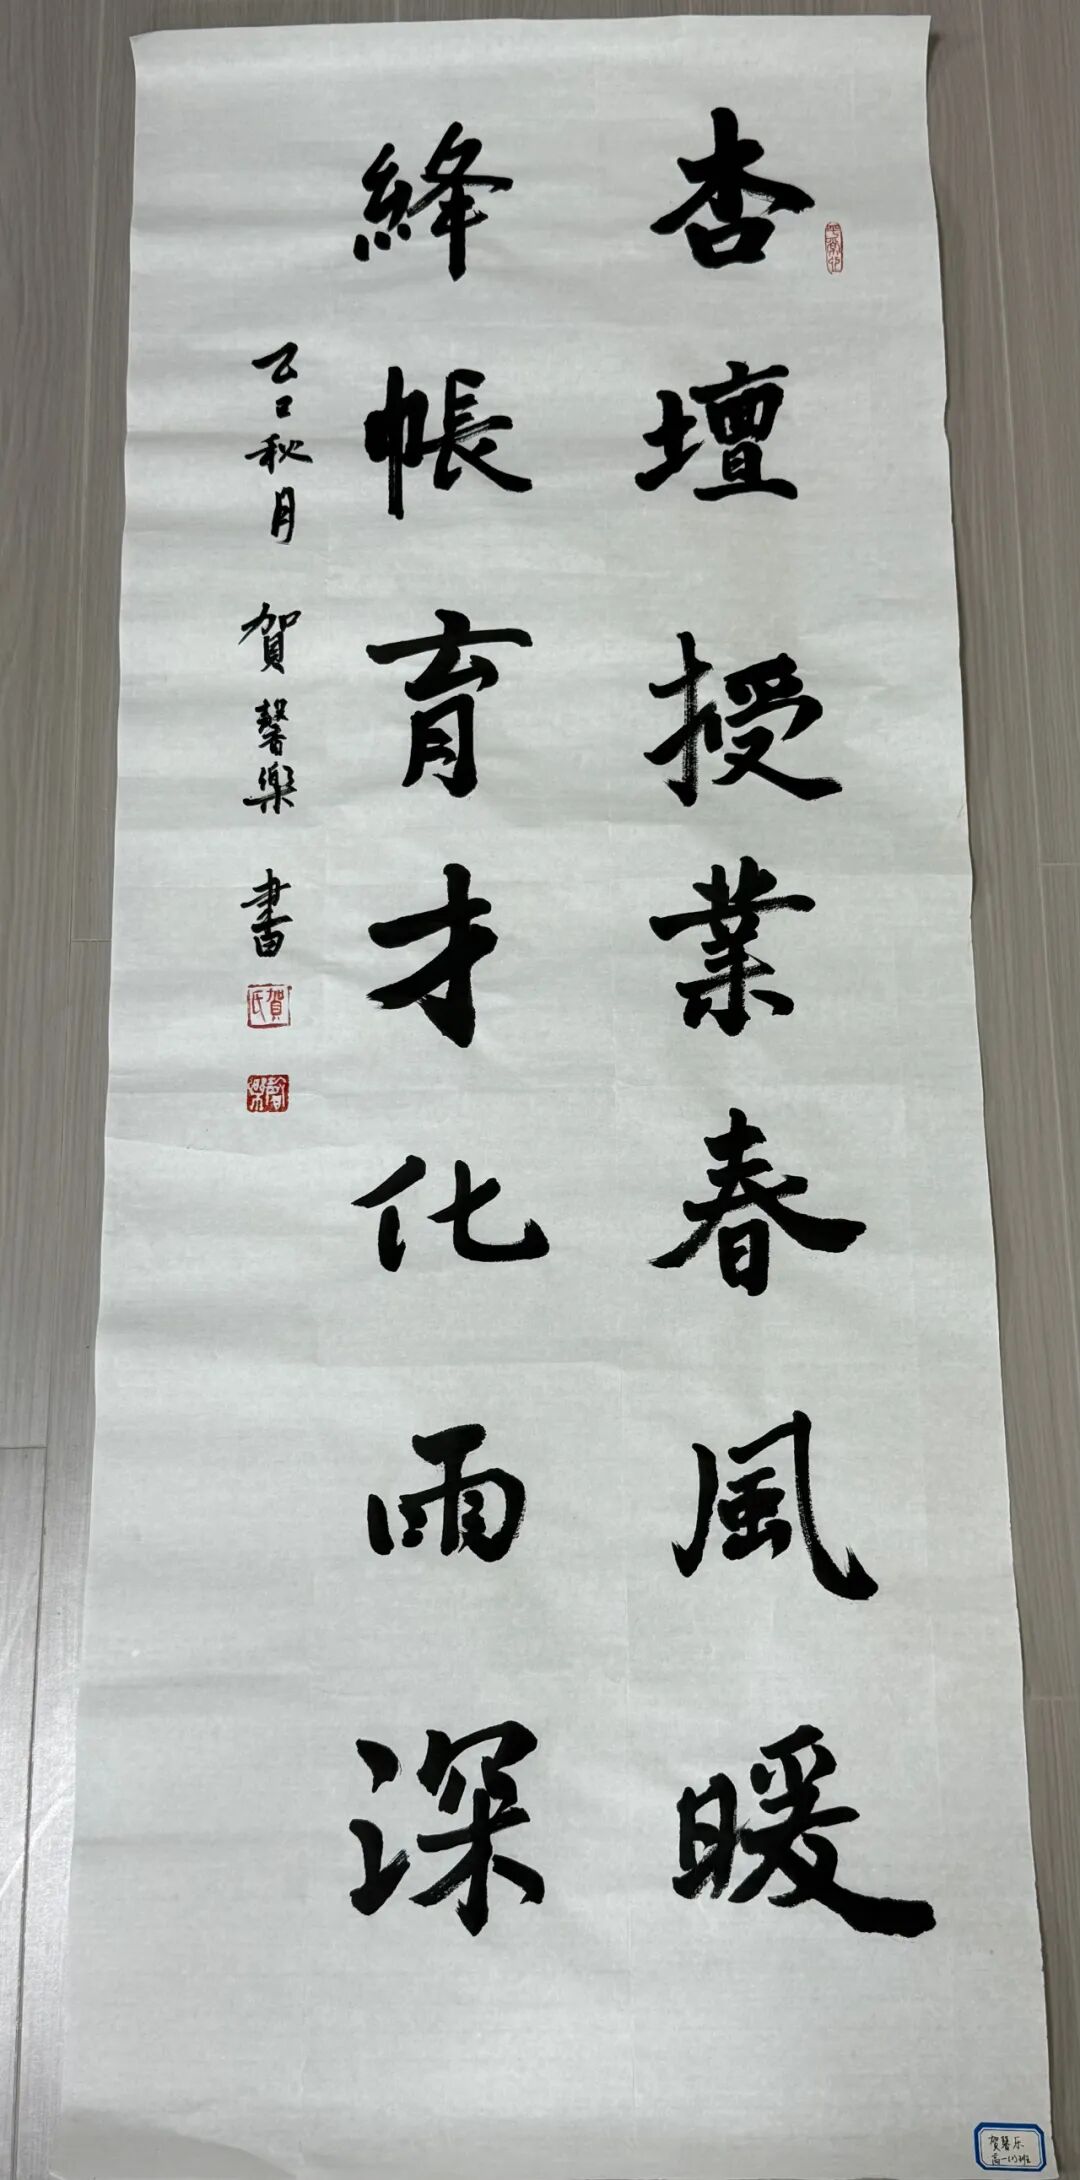 杏壇授業春風暖
絳帳育才化雨深
乙巳秋月 賀馨樂 書
賀氏
馨樂
贺馨乐